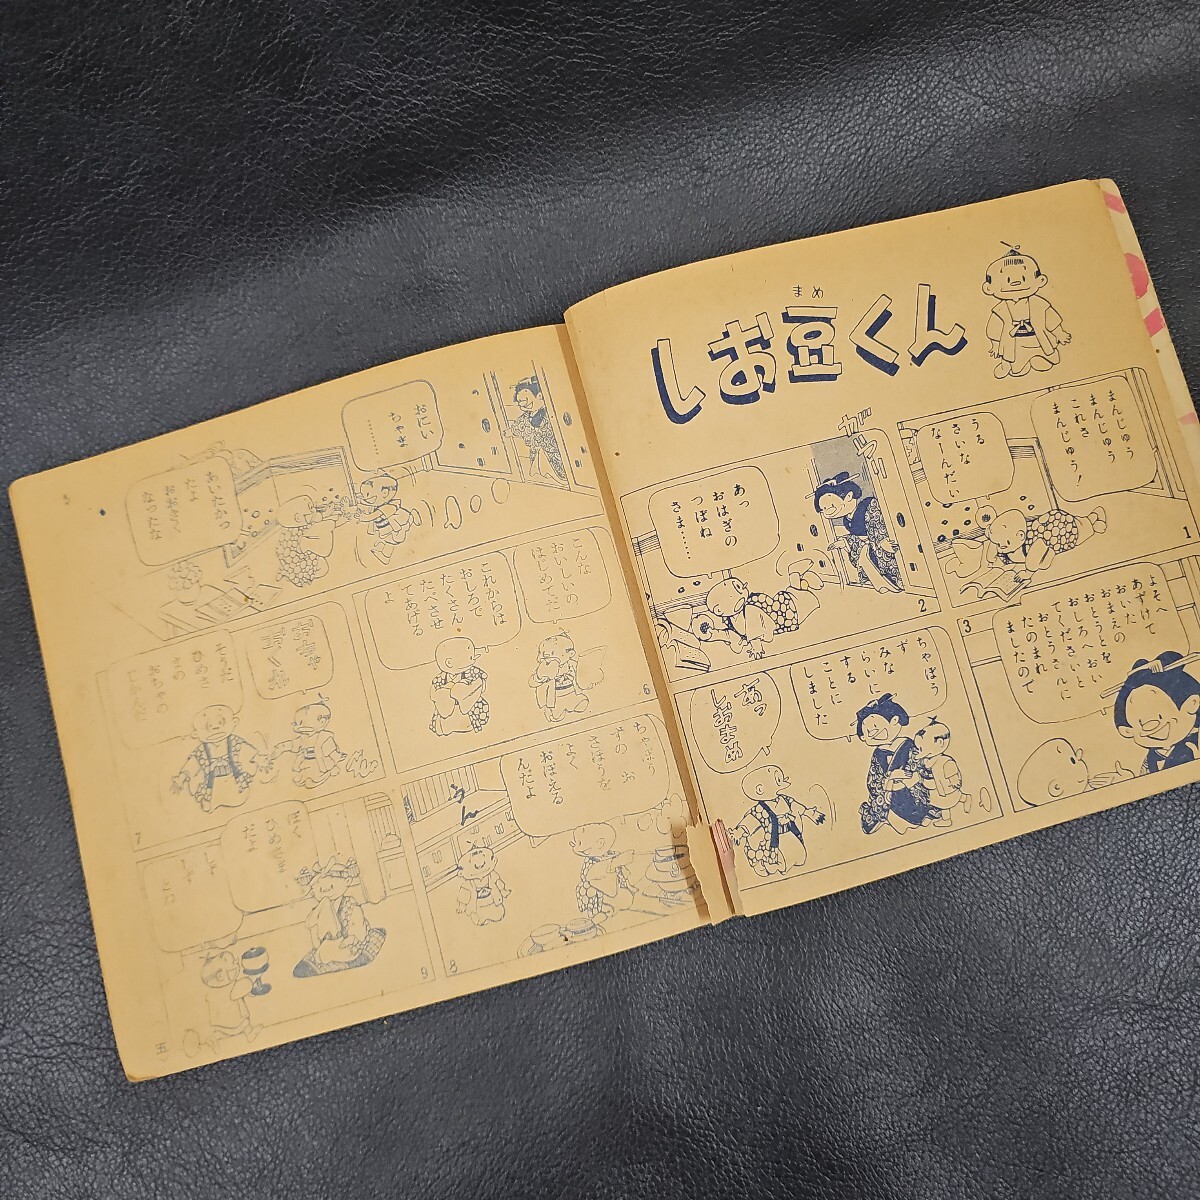 まめ
しお豆くん
まんじゅう
まんじゅう
これさ
まんじゅう！
うる
さいな
なーんだい
1
ガラリ
あっ
おはぎの
つぼね
さま……
2
3
よそへ
あずけて
おいた
おまえの
おとうとを
おしろへおい
てくださいと
おとうさんに
たのまれ
ましたので
ちゃぼう
ず
みな
らいに
する
ことに
しました
あっ
しおまめ
おにい
ちゃま
………
あいたかっ
たよ
おおきく
なったな
5
こんな
おいしいの
はじめてだ
これからは
おしろで
たくさん
たべさせ
てあげる
よ
6
7
ちゃぼう
ずの お
さほうを
よく
おぼえる
んだよ
うん
8
ぼく
ひめぎみ
だよ
9
五